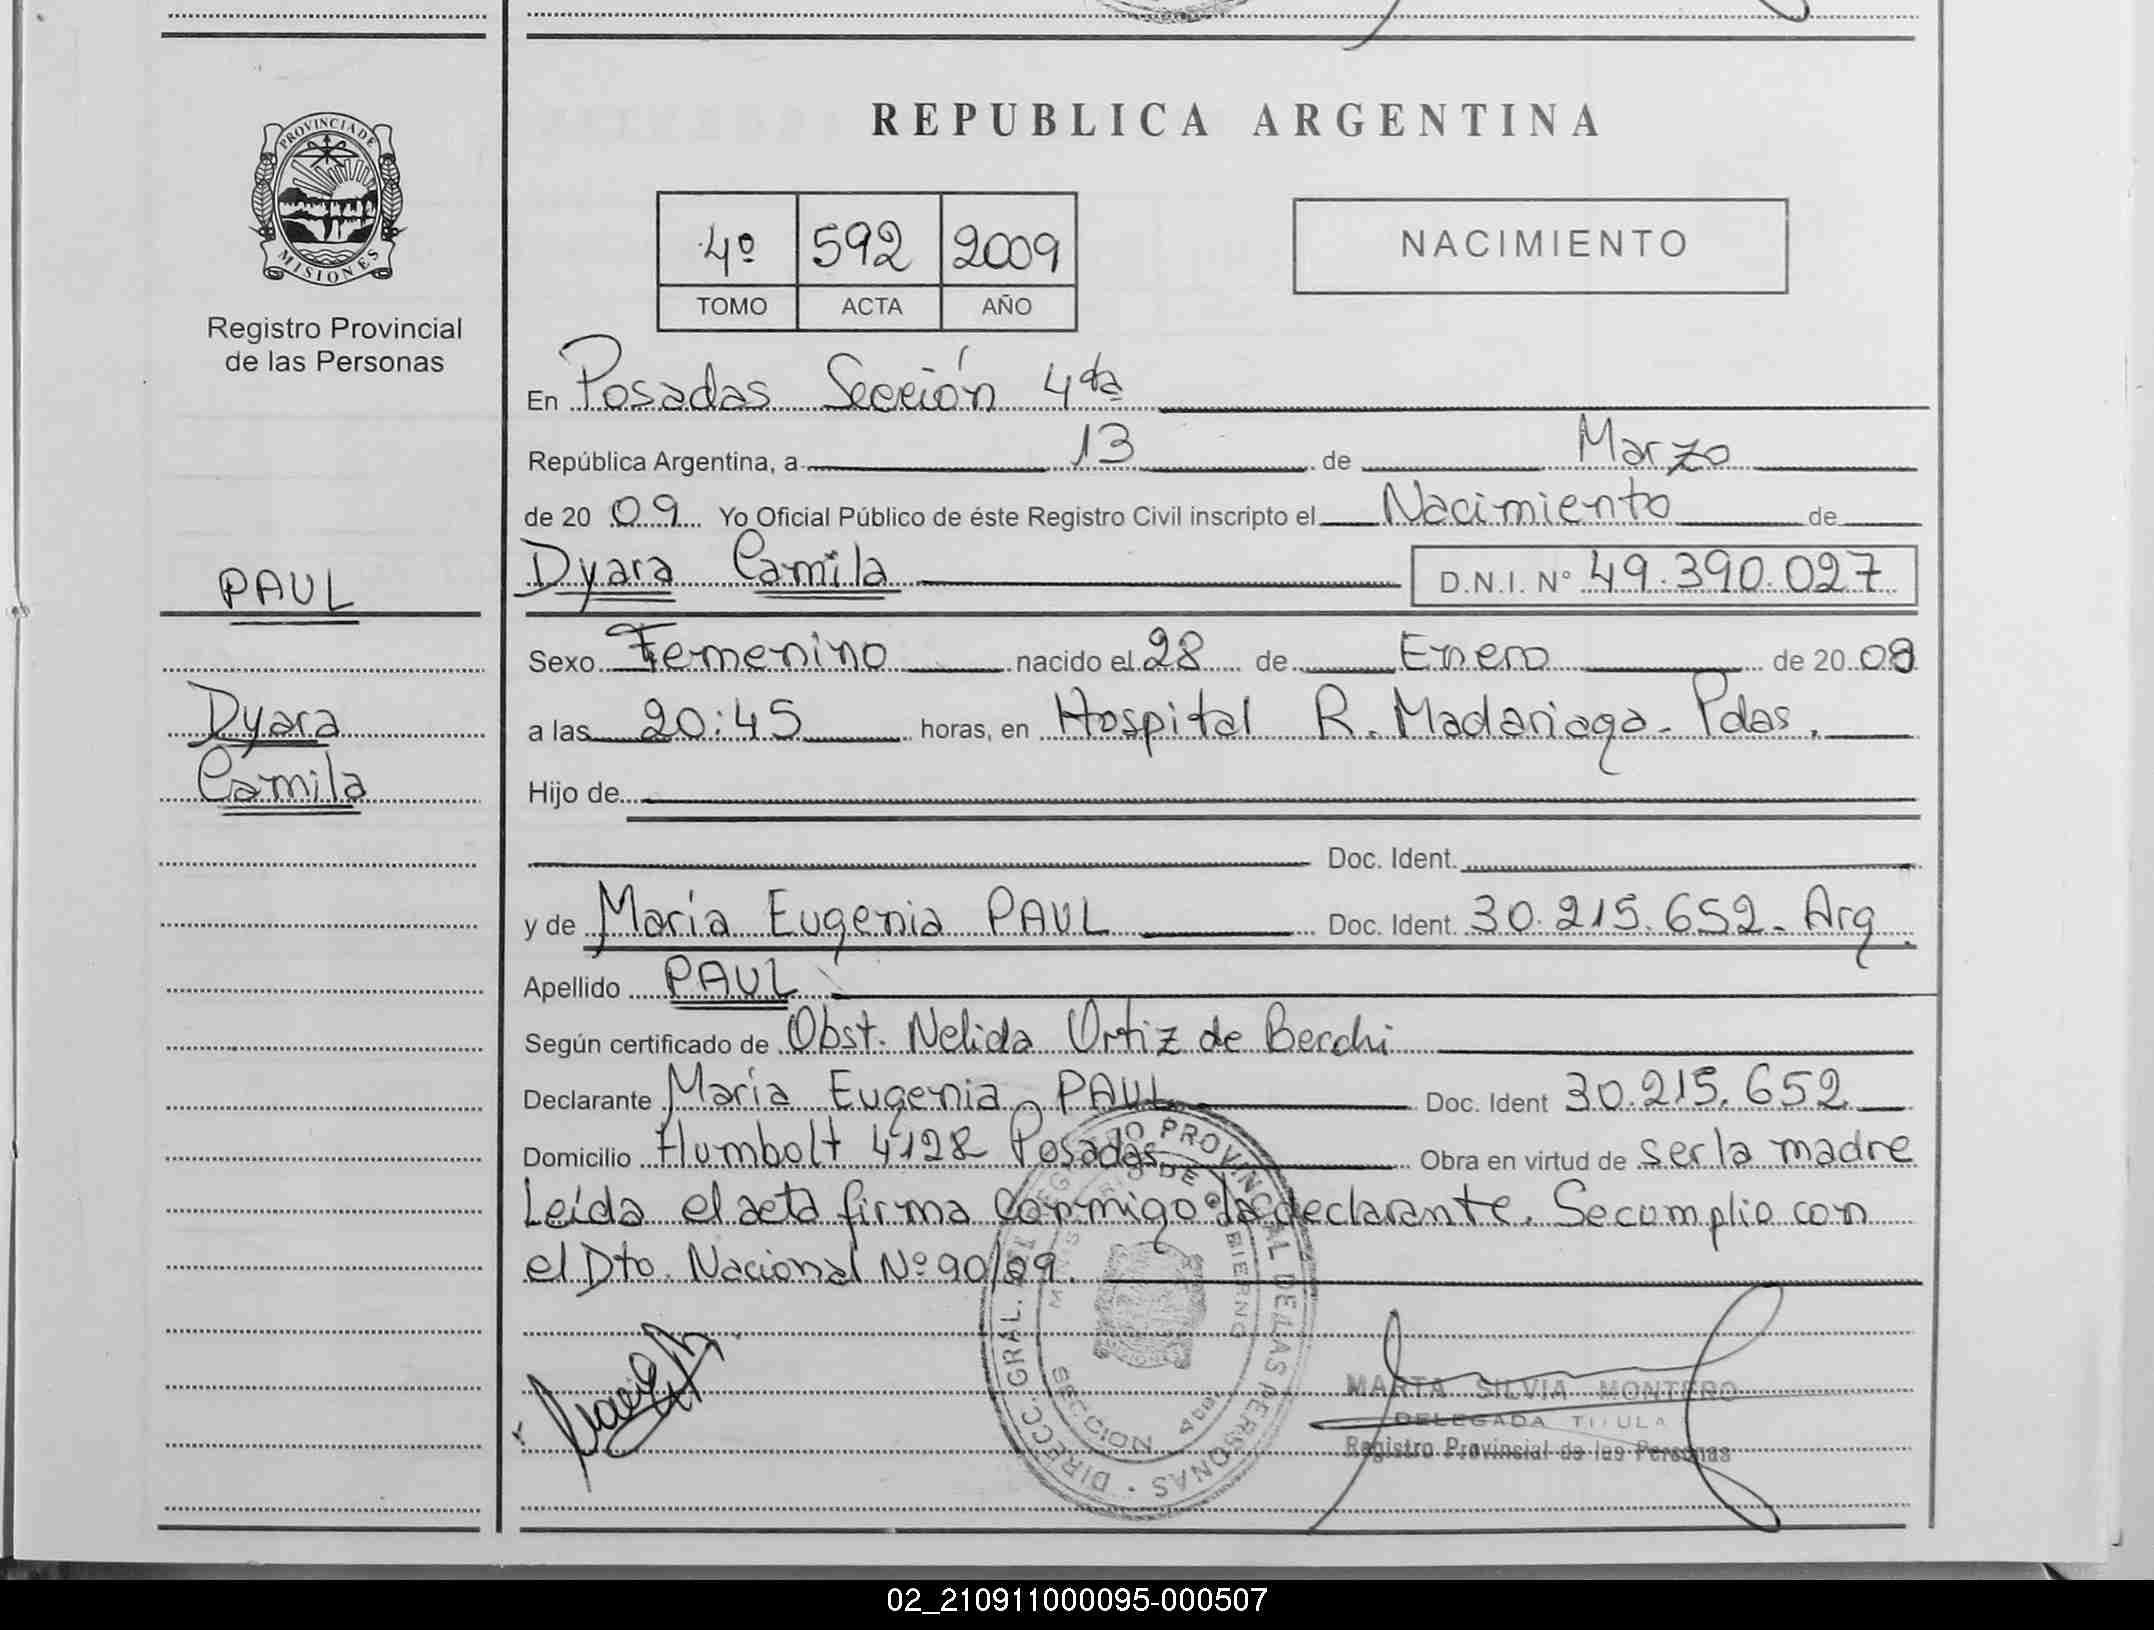 REPUBLICA ARGENTINA
PROVINCIA DE
MISIONES
Registro Provincial
de las Personas
4º 592 2009
TOMO ACTA AÑO
NACIMIENTO
En Posadas Sección 4ta
República Argentina, a 13 de Marzo
de 20 09 Yo Oficial Público de éste Registro Civil inscripto el Nacimiento de
PAUL
Dyara Camila D.N.I. Nº 49.390.027
Sexo Femenino nacido el 28 de Enero de 20 09
Dyara
a las 20:45 horas, en Hospital R. Madariaga. Pdas.
Camila
Hijo de
Doc. Ident.
y de María Eugenia PAUL Doc. Ident. 30.215.652. Arg.
Apellido PAUL
Según certificado de Obst. Nelida Ortiz de Becchi
Declarante María Eugenia PAUL Doc. Ident 30.215.652
Domicilio Humbolt 4128 Posadas Obra en virtud de ser la madre
Leída el acta firma conmigo la declarante. Se cumplio con
el Dto. Nacional Nº 90/09.
DIRECC. GRAL. DEL REGISTRO PROVINCIAL DE LAS PERSONAS
MINISTERIO DE GOBIERNO
SECCION 4ta
MARTA SILVIA MONTERO
DELEGADA TITULAR
Registro Provincial de las Personas
02_210911000095-000507